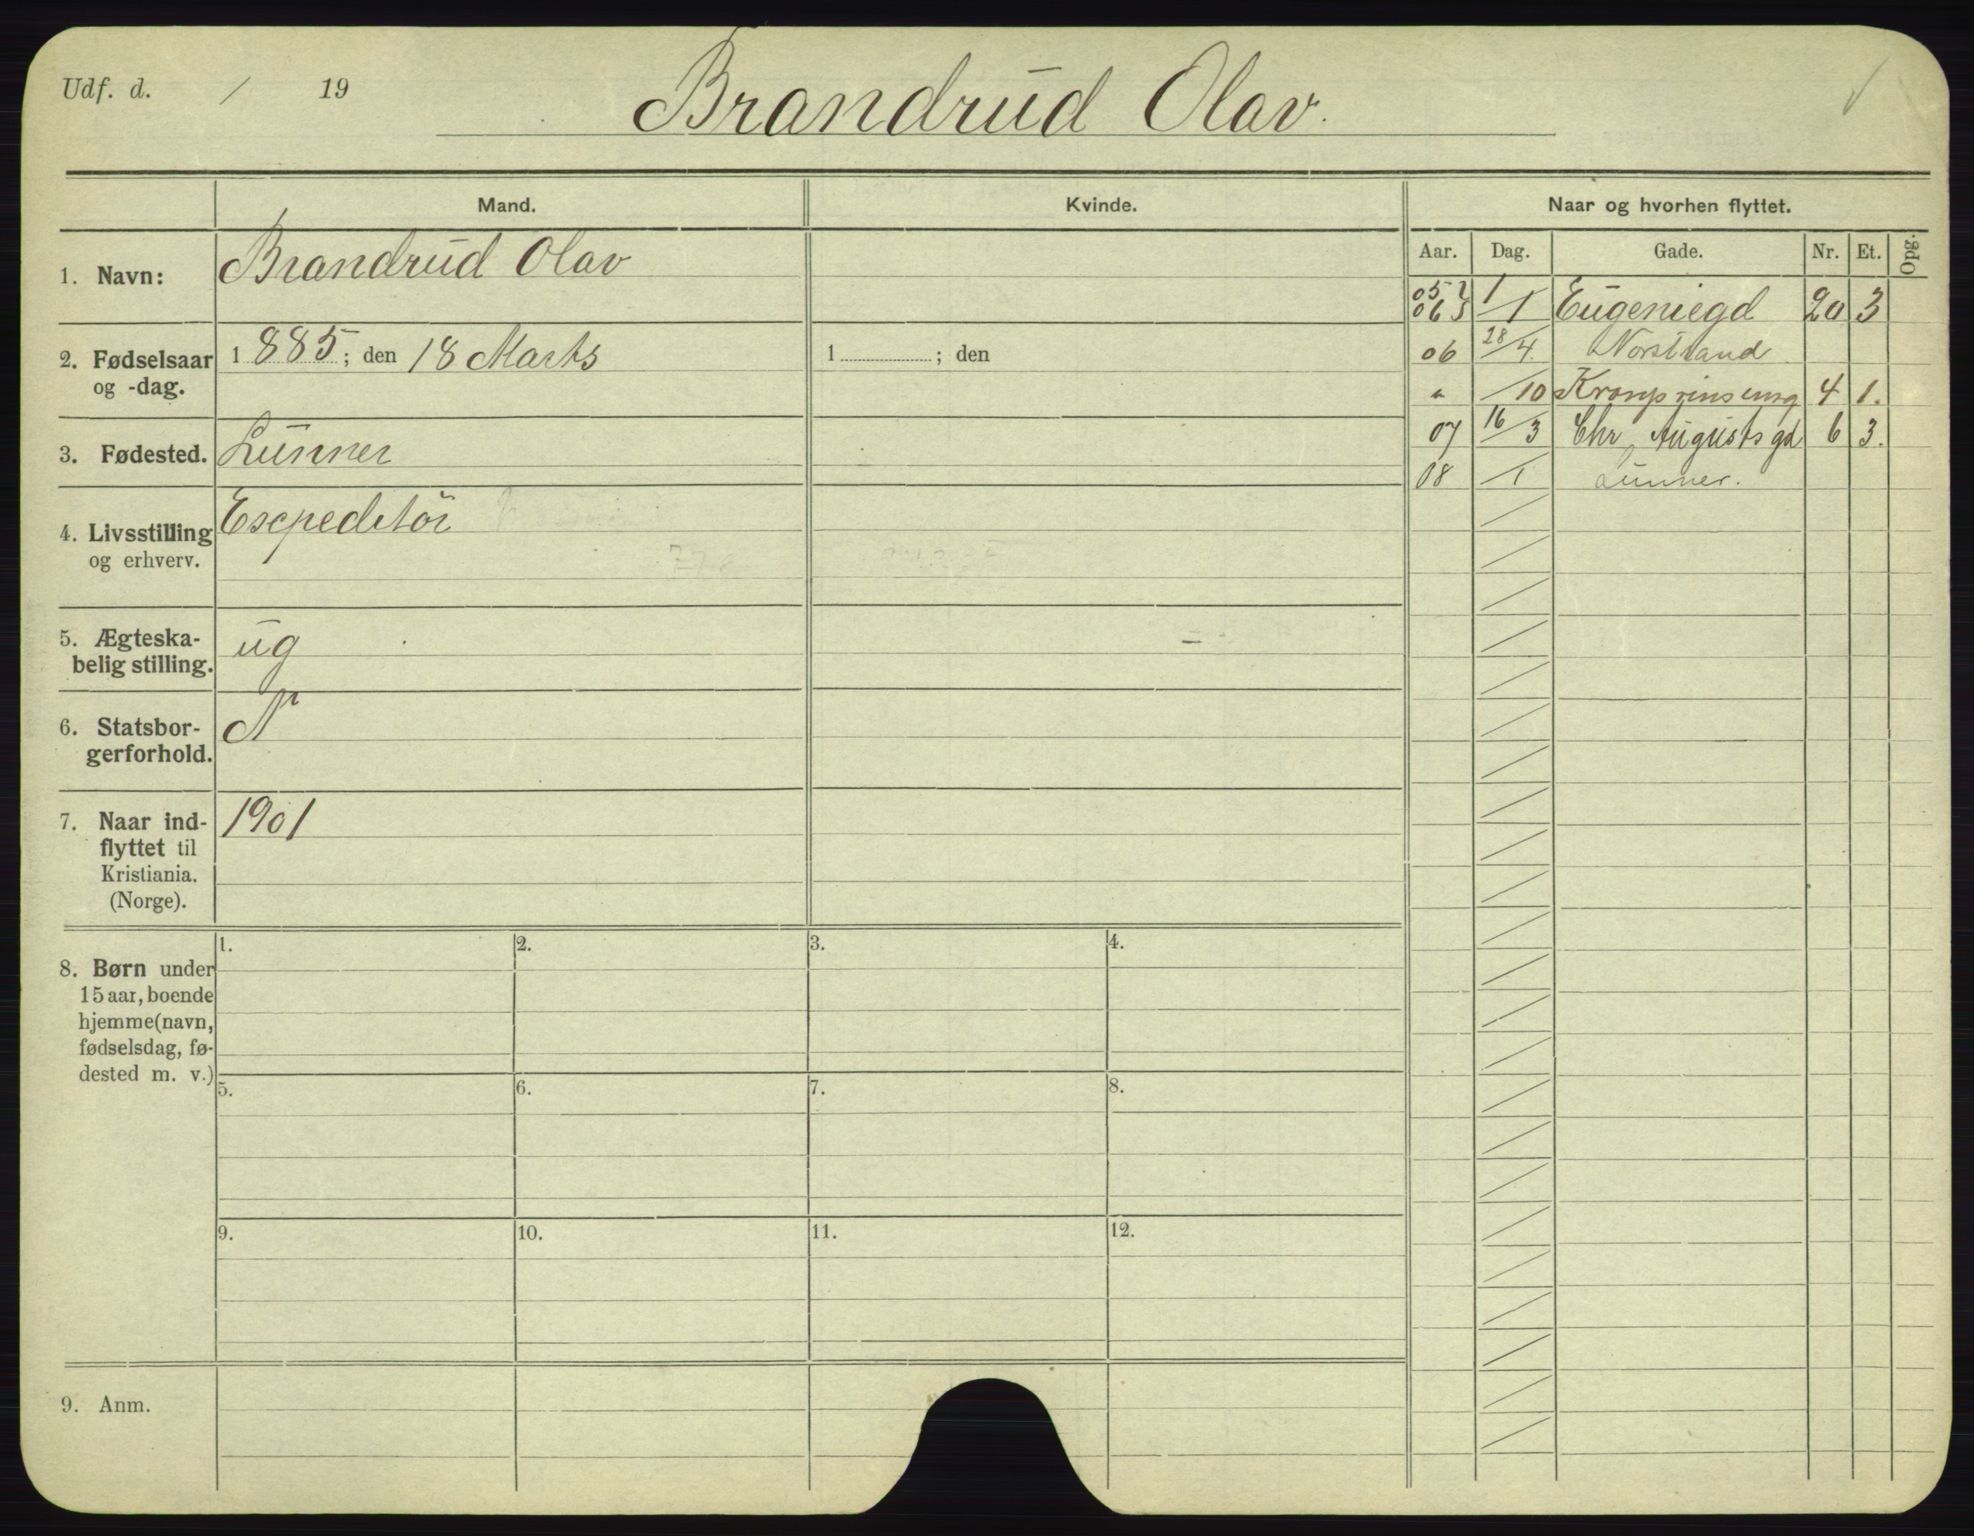 Udf. d. / 19
Brandrud Olav.
Mand. Kvinde. Naar og hvorhen flyttet.
Aar. Dag. Gade. Nr. Et. Opg.
1. Navn: Brandrud Olav
2. Fødselsaar og -dag. 1 885 ; den 18 Marts 1 ; den
3. Fødested. Lunner
4. Livsstilling og erhverv. Expeditør
5. Ægteska-
belig stilling. ug
6. Statsbor-
gerforhold. N
7. Naar ind-
flyttet til
Kristiania.
(Norge). 1901
8. Børn under
15 aar, boende
hjemme (navn,
fødselsdag, fø-
dested m. v.)
1. 2. 3. 4.
5. 6. 7. 8.
9. 10. 11. 12.
9. Anm.
05 1
06 /1 Eugeniegd 20 3
06 28/4 Norstrand
" /10 Kronprinsensg 4 1.
07 16/3 Chr. Augusts gd 6 3.
08 /1 Lunner.